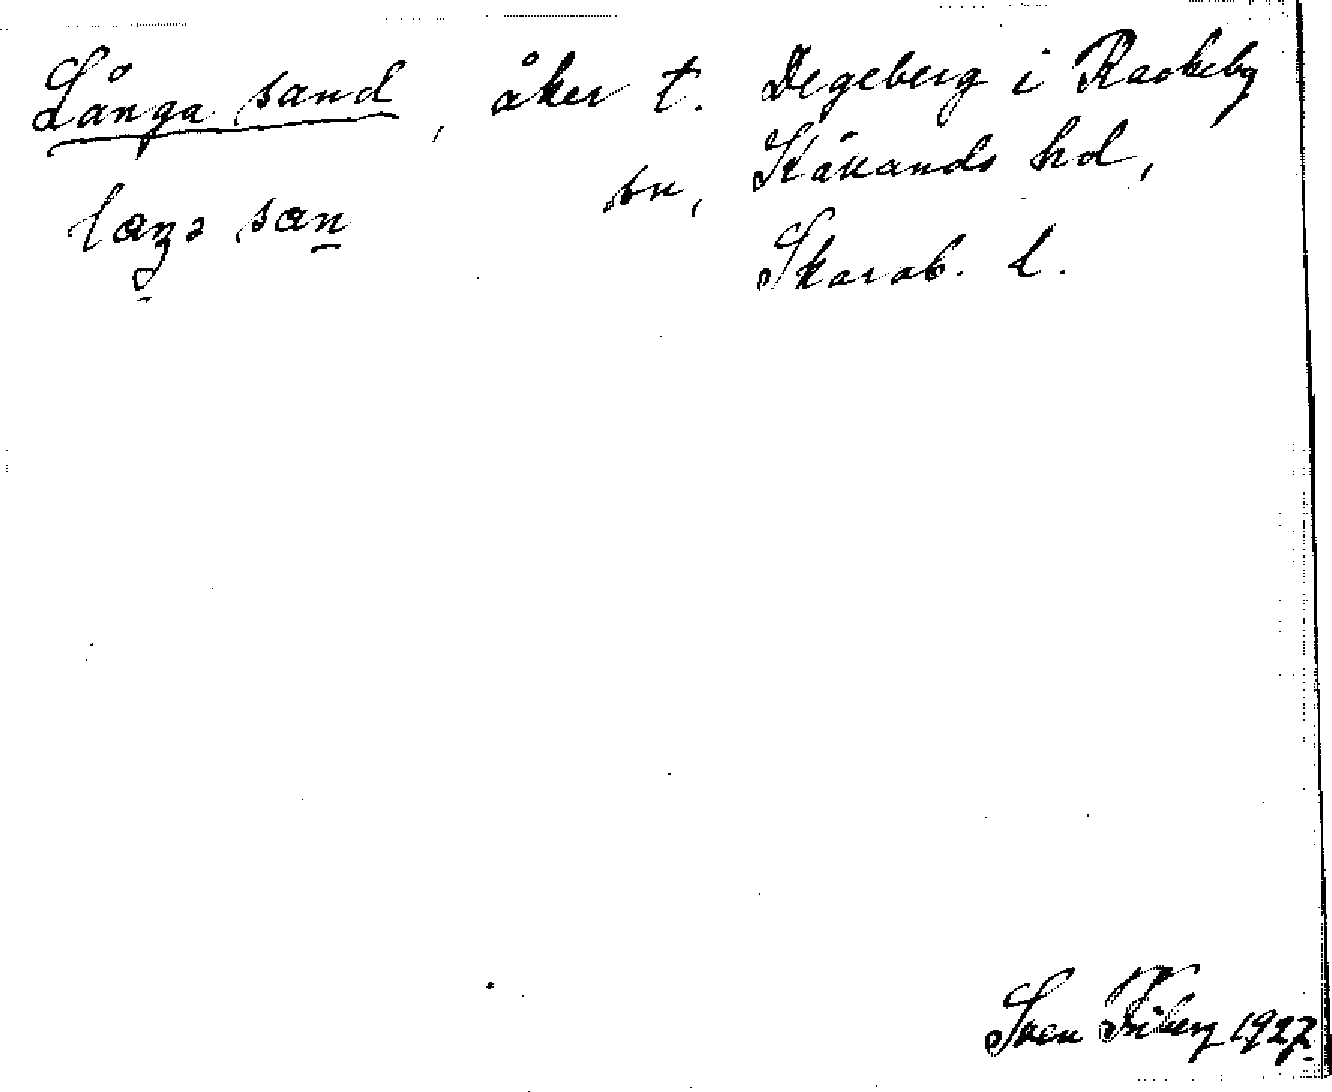 Långa sand, åker t. Degeberg i Rackeby
sn, Kållands hd,
Skarab. l.
Sven 1927